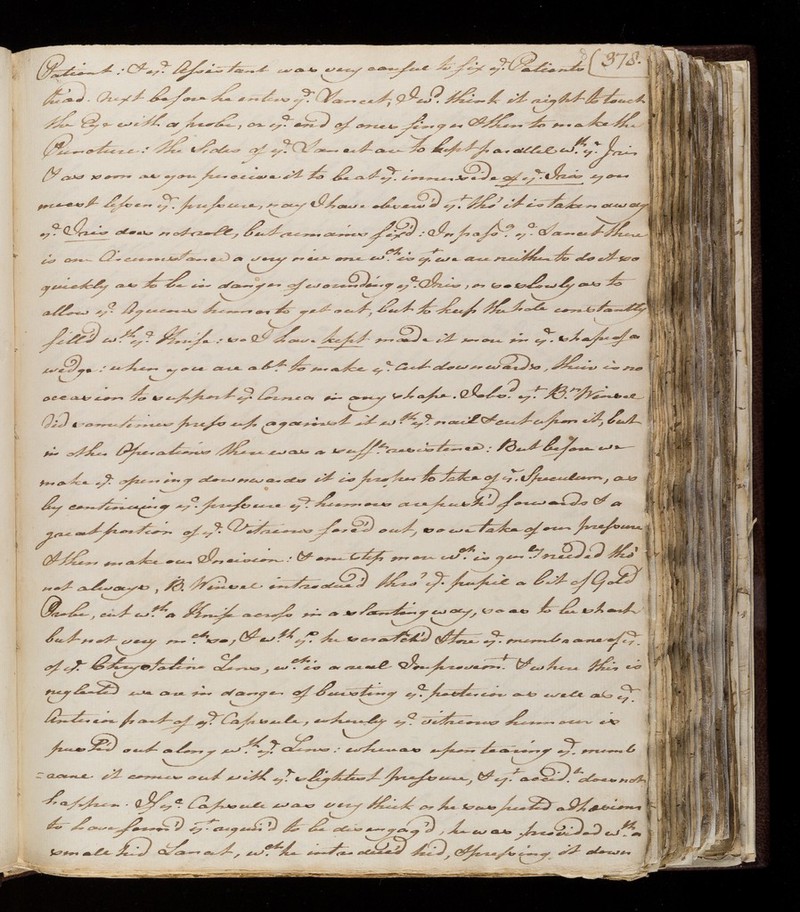 (378.
Patient: & yᵉ. Assistant was very careful to fix yᵉ. Patients
head. Next before he enters yᵉ. Lancet, I wᵈ. think it right to touch
the Eye with a probe, or yᵉ. end of ones finger & then to make the
Puncture: the Sides of yᵉ. Lancet are to kept parallel wᵗʰ. yᵉ. Iris
& as soon as you perceive it to be at yᵉ. inner side of yᵉ. Iris you
must lessen yᵉ. pressure, nay I have observ'd yᵗ. tho' it is taken away
yᵉ. Iris does not roll, but remains fix'd: In passᵍ. yᵉ. Lancet there
is one Circumstance a very nice one wᶜʰ. is yᵗ. we are neither to do it so
quickly as to be in danger of wounding yᵉ. Iris, or so slowly as to
allow yᵉ. Aqueous humor to get out, but to keep the hole constantly
fill'd wᵗʰ. yᵉ. Knife: so I have kept made it more in yᵉ. shape of a
wedge: when you are abᵗ. to make yᵉ. cut downwards, there is no
occasion to support yᵉ. Cornea in any shape. I obsᵈ. yᵗ. Bⁿ. Winsel
did sometimes press up against it wᵗʰ. yᵉ. nail & cut upon it, but
in other Operations there was a suffᵗ. resistence: But before we
make yᵉ. opening downwards it is proper to take of yᵉ. Speculum, as
by continuing yᵉ. pressure yᵉ. humors are push'd forwards & a
great portion of yᵉ. Vitreous forc'd out, so we take of our pressure
& then make our Incision: & one step more wᶜʰ. is genˡʸ. needed tho'
not always, B. Winsel introduc'd thro' yᵉ. pupil a bit of Gold
Probe, cut wᵗʰ. a Knife across in a slanting way, so as to be sharp
but not very mᶜʰ. so, & wᵗʰ. yˢ. he scratch'd & tore yᵉ. membrane of yᵉ.
of yᵉ. Chrystaline Lens, wᶜʰ. is a real Improvemᵗ. & where this is
neglected we are in danger of bursting yᵉ. posterior as well as yᵉ.
Anterior part of yᵉ. Capsule, whereby yᵉ. vitreous humour is
push'd out along wᵗʰ. yᵉ. Lens: whereas upon tearing yᵉ. memb
=rane it comes out with yᵉ. slightest pressure, & yᵗ. accidᵗ. does not
happen. If yᵉ. Capsule was very thick or he suspected adhesions
to have form'd yᵗ. requir'd to be disengag'd, he was provided wᵗʰ. a
small hid Lancet, wᶜʰ. he introduced hid, & pressing it down